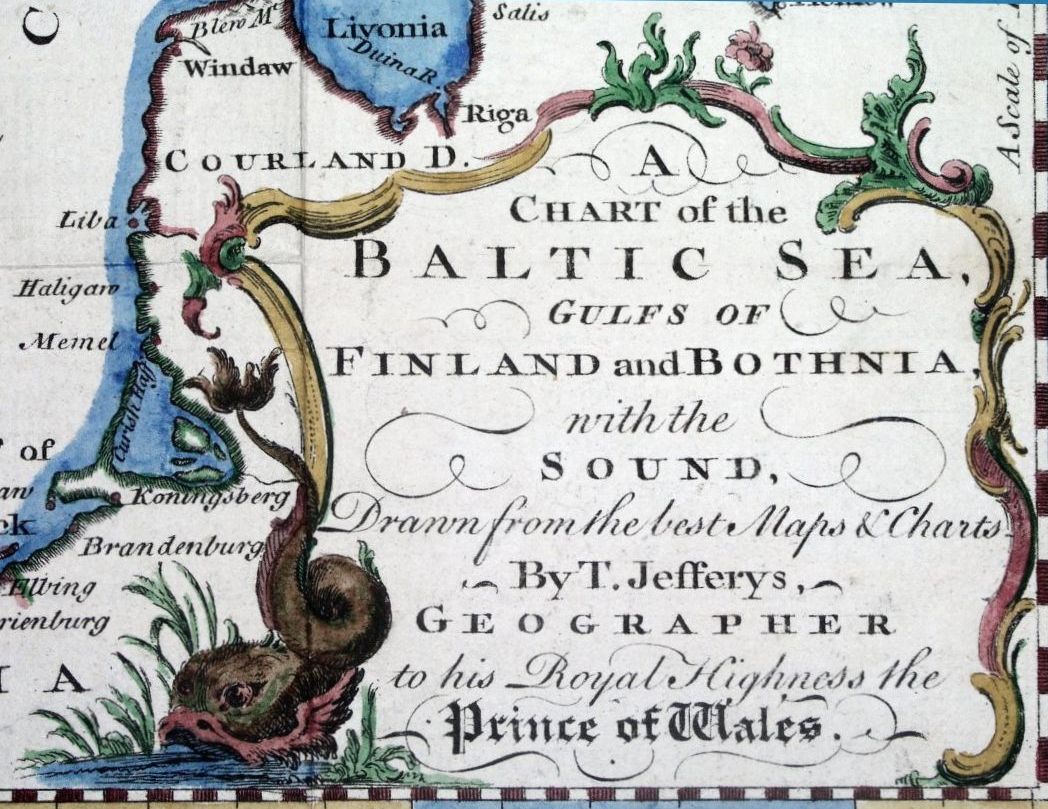 Salis
Blew Mt
Livonia
Duina R
Windaw
Riga
COURLAND D.
A Scale of
Liba
Haligaw
Memel
Curish Haff
of
Koningsberg
Brandenburg
Elbing
rienburg
I A
A
CHART of the
BALTIC SEA,
GULFS OF
FINLAND and BOTHNIA,
with the
SOUND,
Drawn from the best Maps & Charts
By T. Jefferys,
GEOGRAPHER
to his Royal Highness the
Prince of Wales.